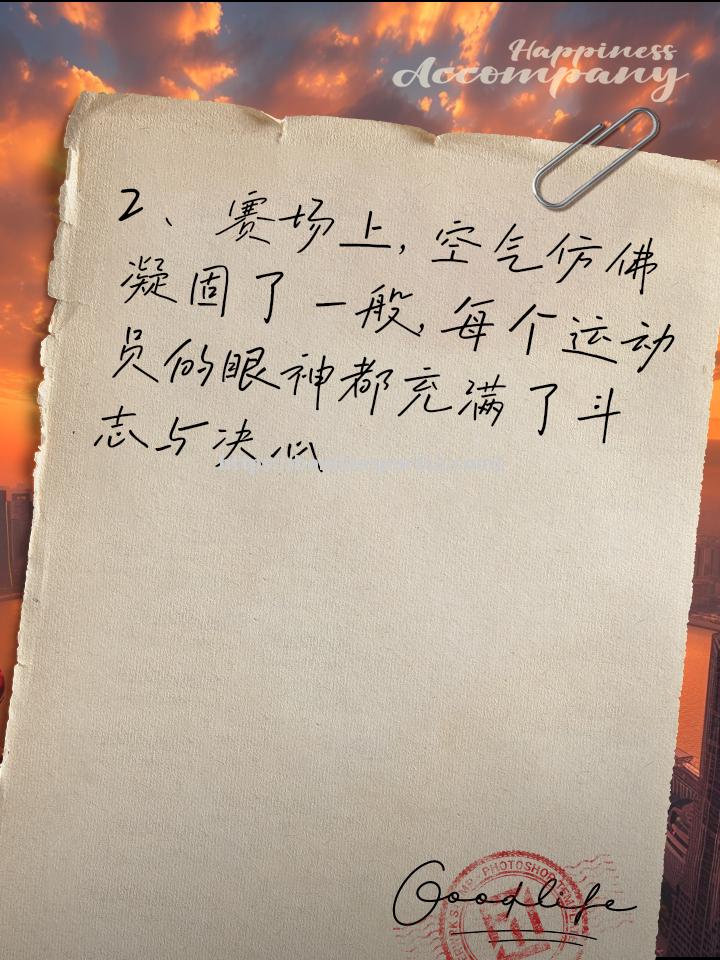 Happiness
Accompany
2、赛场上，空气仿佛
凝固了一般，每个运动
员的眼神都充满了斗
志与决心
Goodlife
PHOTOSHOP